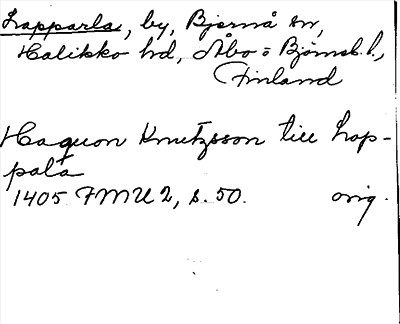 Lapparla, by, Bjernå sn,
Halikko hd, Åbo o Björneb. l.,
Finland
Haquon Knutzsson till Lop-
pala
1405 FMU 2, s. 50. orig.